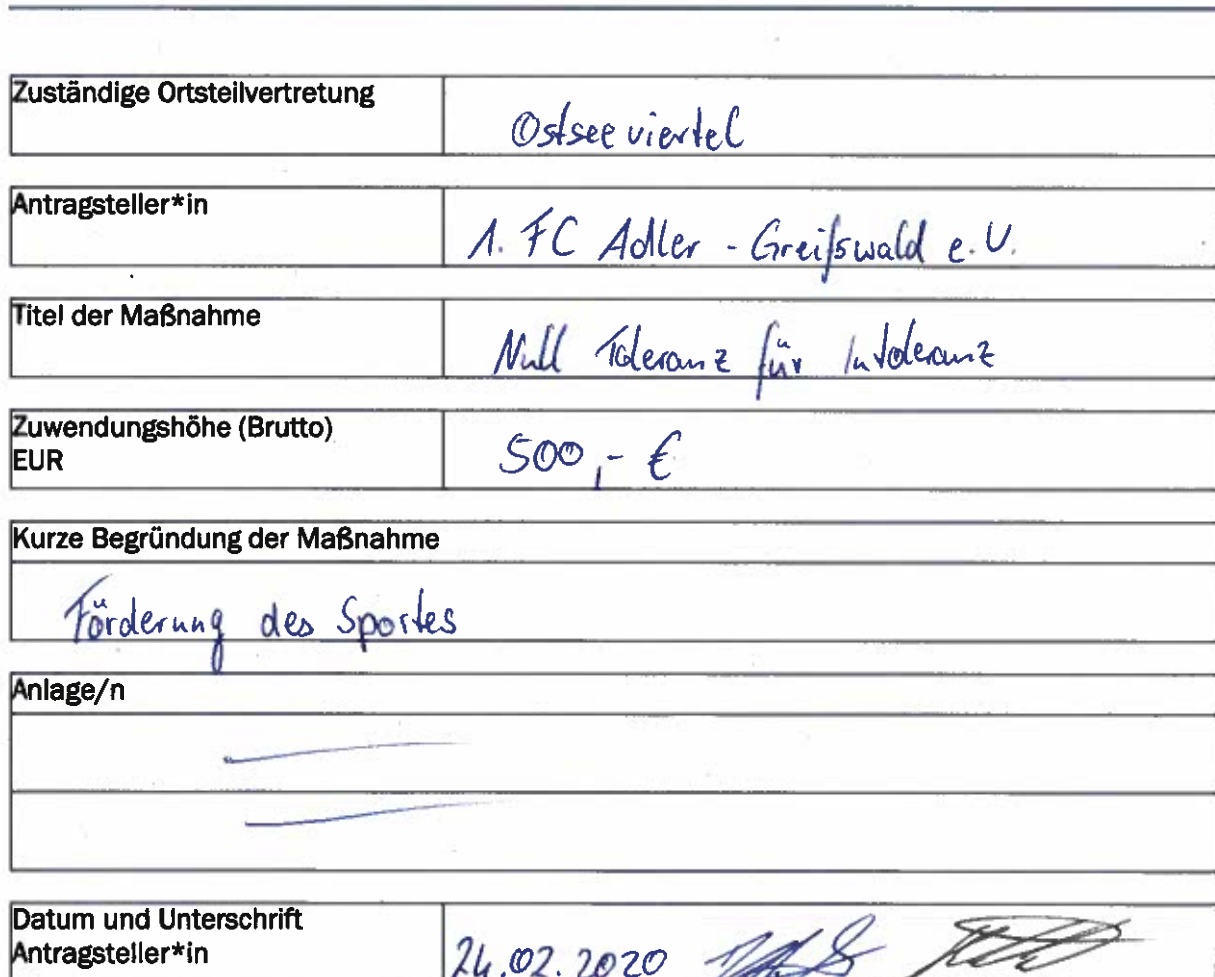 Zuständige Ortsteilvertretung
Ostseeviertel
Antragsteller*in
1. FC Adler - Greifswald e.V.
Titel der Maßnahme
Null Toleranz für Intoleranz
Zuwendungshöhe (Brutto)
EUR
500,- €
Kurze Begründung der Maßnahme
Förderung des Sportes
Anlage/n
Datum und Unterschrift
Antragsteller*in
24.02.2020